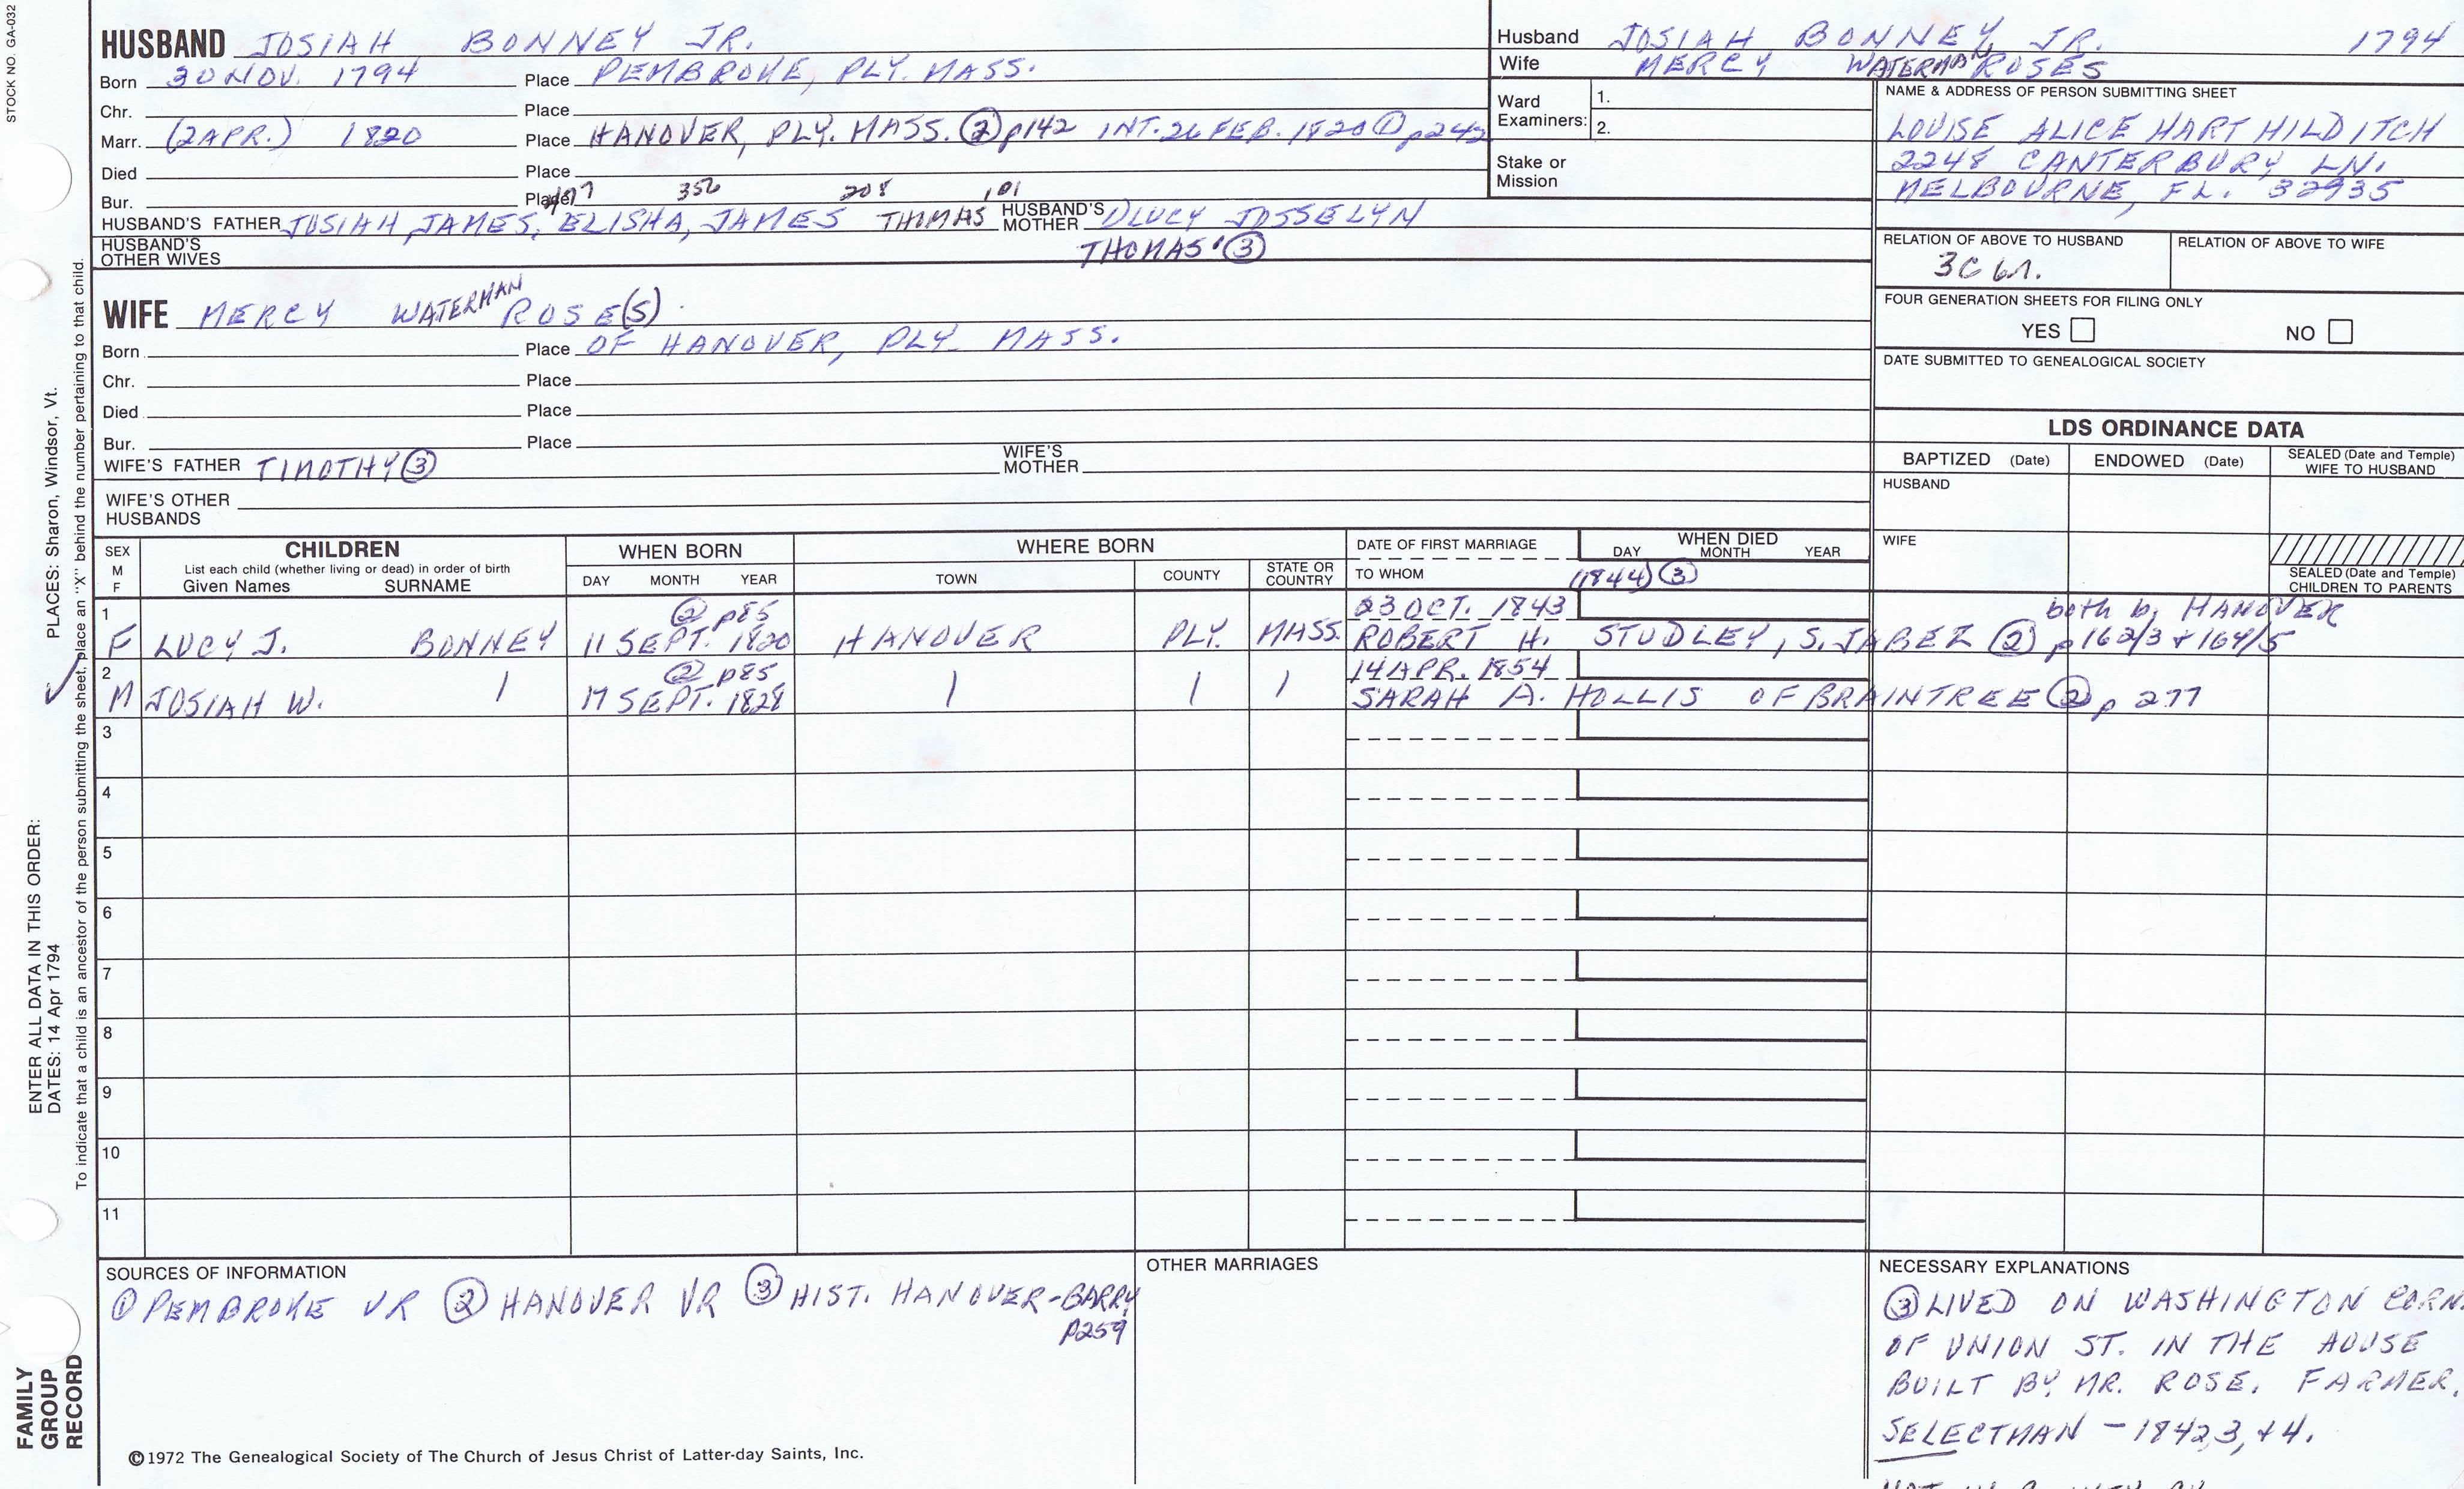 STOCK NO. GA-032
HUSBAND JOSIAH BONNEY JR.
Born 30 NOV. 1794 Place PEMBROKE, PLY. MASS.
Chr. Place
Marr. (2 APR.) 1820 Place HANOVER, PLY. MASS. ② p142 INT. 26 FEB. 1820 ① p242
Died Place
Bur. Place 356 208 101
HUSBAND'S FATHER JOSIAH, JAMES, ELISHA, JAMES THOMAS HUSBAND'S MOTHER LUCY JOSSELYN
HUSBAND'S OTHER WIVES THOMAS ③
Husband JOSIAH BONNEY, JR. 1794
Wife MERCY WATERMAN ROSES
Ward Examiners: 1.
2.
Stake or Mission
NAME & ADDRESS OF PERSON SUBMITTING SHEET
LOUISE ALICE HART HILDITCH
2248 CANTERBURY LN.
MELBOURNE, FL. 32935
RELATION OF ABOVE TO HUSBAND RELATION OF ABOVE TO WIFE
3C
FOUR GENERATION SHEETS FOR FILING ONLY
YES NO
DATE SUBMITTED TO GENEALOGICAL SOCIETY
WIFE MERCY WATERMAN ROSE(S)
Born Place OF HANOVER, PLY MASS.
Chr. Place
Died Place
Bur. Place
WIFE'S FATHER TIMOTHY ③ WIFE'S MOTHER
WIFE'S OTHER HUSBANDS
LDS ORDINANCE DATA
BAPTIZED (Date) ENDOWED (Date) SEALED (Date and Temple) WIFE TO HUSBAND
HUSBAND
WIFE
SEALED (Date and Temple) CHILDREN TO PARENTS
SEX M F CHILDREN
List each child (whether living or dead) in order of birth
Given Names SURNAME
WHEN BORN
DAY MONTH YEAR
WHERE BORN
TOWN COUNTY STATE OR COUNTRY
DATE OF FIRST MARRIAGE
TO WHOM
WHEN DIED
DAY MONTH YEAR
(1844) ③
1 ② p85 23 OCT. 1843 both b. HANOVER
F LUCY J. BONNEY 11 SEPT. 1820 HANOVER PLY. MASS. ROBERT H. STUDLEY, S. JABEZ ② p162/3 + 164/5
2 ② p85 14 APR. 1854
M JOSIAH W. 17 SEPT. 1828 SARAH A. HOLLIS OF BRAINTREE ② p 277
3
4
5
6
7
8
9
10
11
SOURCES OF INFORMATION
① PEMBROKE VR ② HANOVER VR ③ HIST. HANOVER-BARRY
p259
OTHER MARRIAGES
NECESSARY EXPLANATIONS
③ LIVED ON WASHINGTON CORN.
OF UNION ST. IN THE HOUSE
BUILT BY MR. ROSE. FARMER.
SELECTMAN - 1842,3,+4.
©1972 The Genealogical Society of The Church of Jesus Christ of Latter-day Saints, Inc.
PLACES: Sharon, Windsor, Vt.
ENTER ALL DATA IN THIS ORDER:
DATES: 14 Apr 1794
To indicate that a child is an ancestor of the person submitting the sheet, place an "X" behind the number pertaining to that child.
FAMILY GROUP RECORD